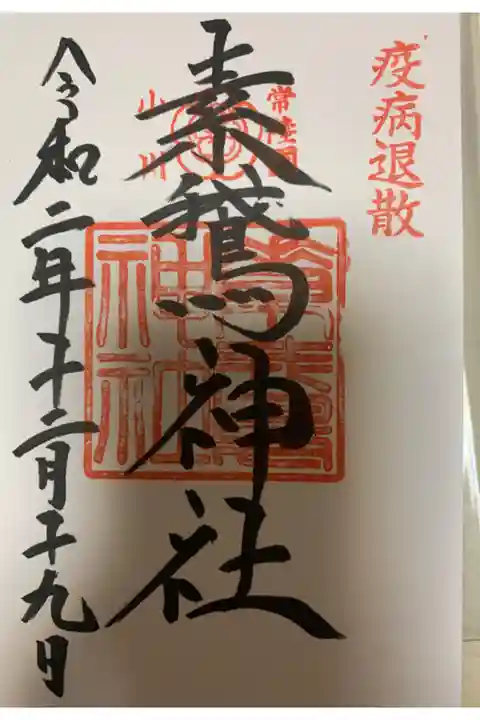 疫病退散
常陸国
小川
素鵞神社
素鵞神社
令和二年十二月十九日